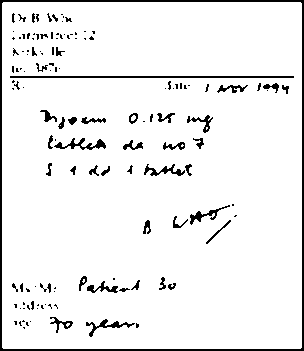 Dr B. Who
Farmstreet 12
Kirkville
tel. 3876
R/ date 1 Nov 1994
0.125 mg
tablets da no 7
S 1 dd 1 tablet
B Who
Ms/Mr Patient 30
address
age 70 years